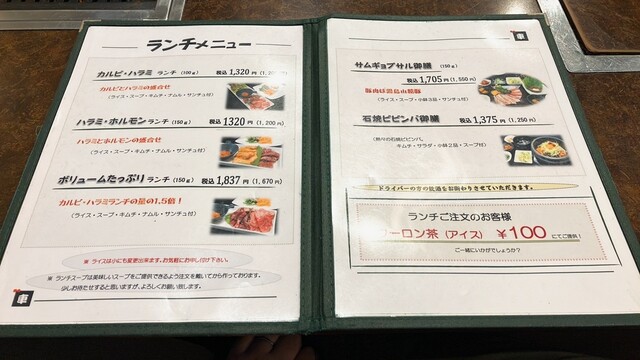 ランチメニュー
カルビ・ハラミ ランチ (100g) 税込 1,320 円 (1,200円)
カルビとハラミの盛合せ
(ライス・スープ・キムチ・ナムル・サンチュ付)
ハラミ・ホルモンランチ (150g) 税込 1320 円 (1,200 円)
ハラミとホルモンの盛合せ
(ライス・スープ・キムチ・ナムル・サンチュ付)
ボリュームたっぷり ランチ (150g) 税込 1,837 円 (1,670 円)
カルビ・ハラミランチの量の1.5倍!
(ライス・スープ・キムチ・ナムル・サンチュ付)
※ ライスは小にも変更出来ます。お気軽にお申し付け下さい。
※ ランチスープは美味しいスープをご提供できるよう注文を戴いてから作っております。
少しお待たせすると思いますが、よろしくお願い致します。
車
車
サムギョプサル御膳 (150g)
税込 1,705 円 (1,550 円)
豚肉は
(ライス・スープ・小鉢3品・サンチュ付)
石焼ビビンバ御膳 税込 1,375 円 (1,250 円)
(熱々の石焼ビビンバ。
キムチ・サラダ・小鉢2品・スープ付)
ドライバーの方の飲酒をお断りさせていただきます。
ランチご注文のお客様
ーロン茶 (アイス) ¥100 にてご提供!
ご一緒にいかがでしょうか?